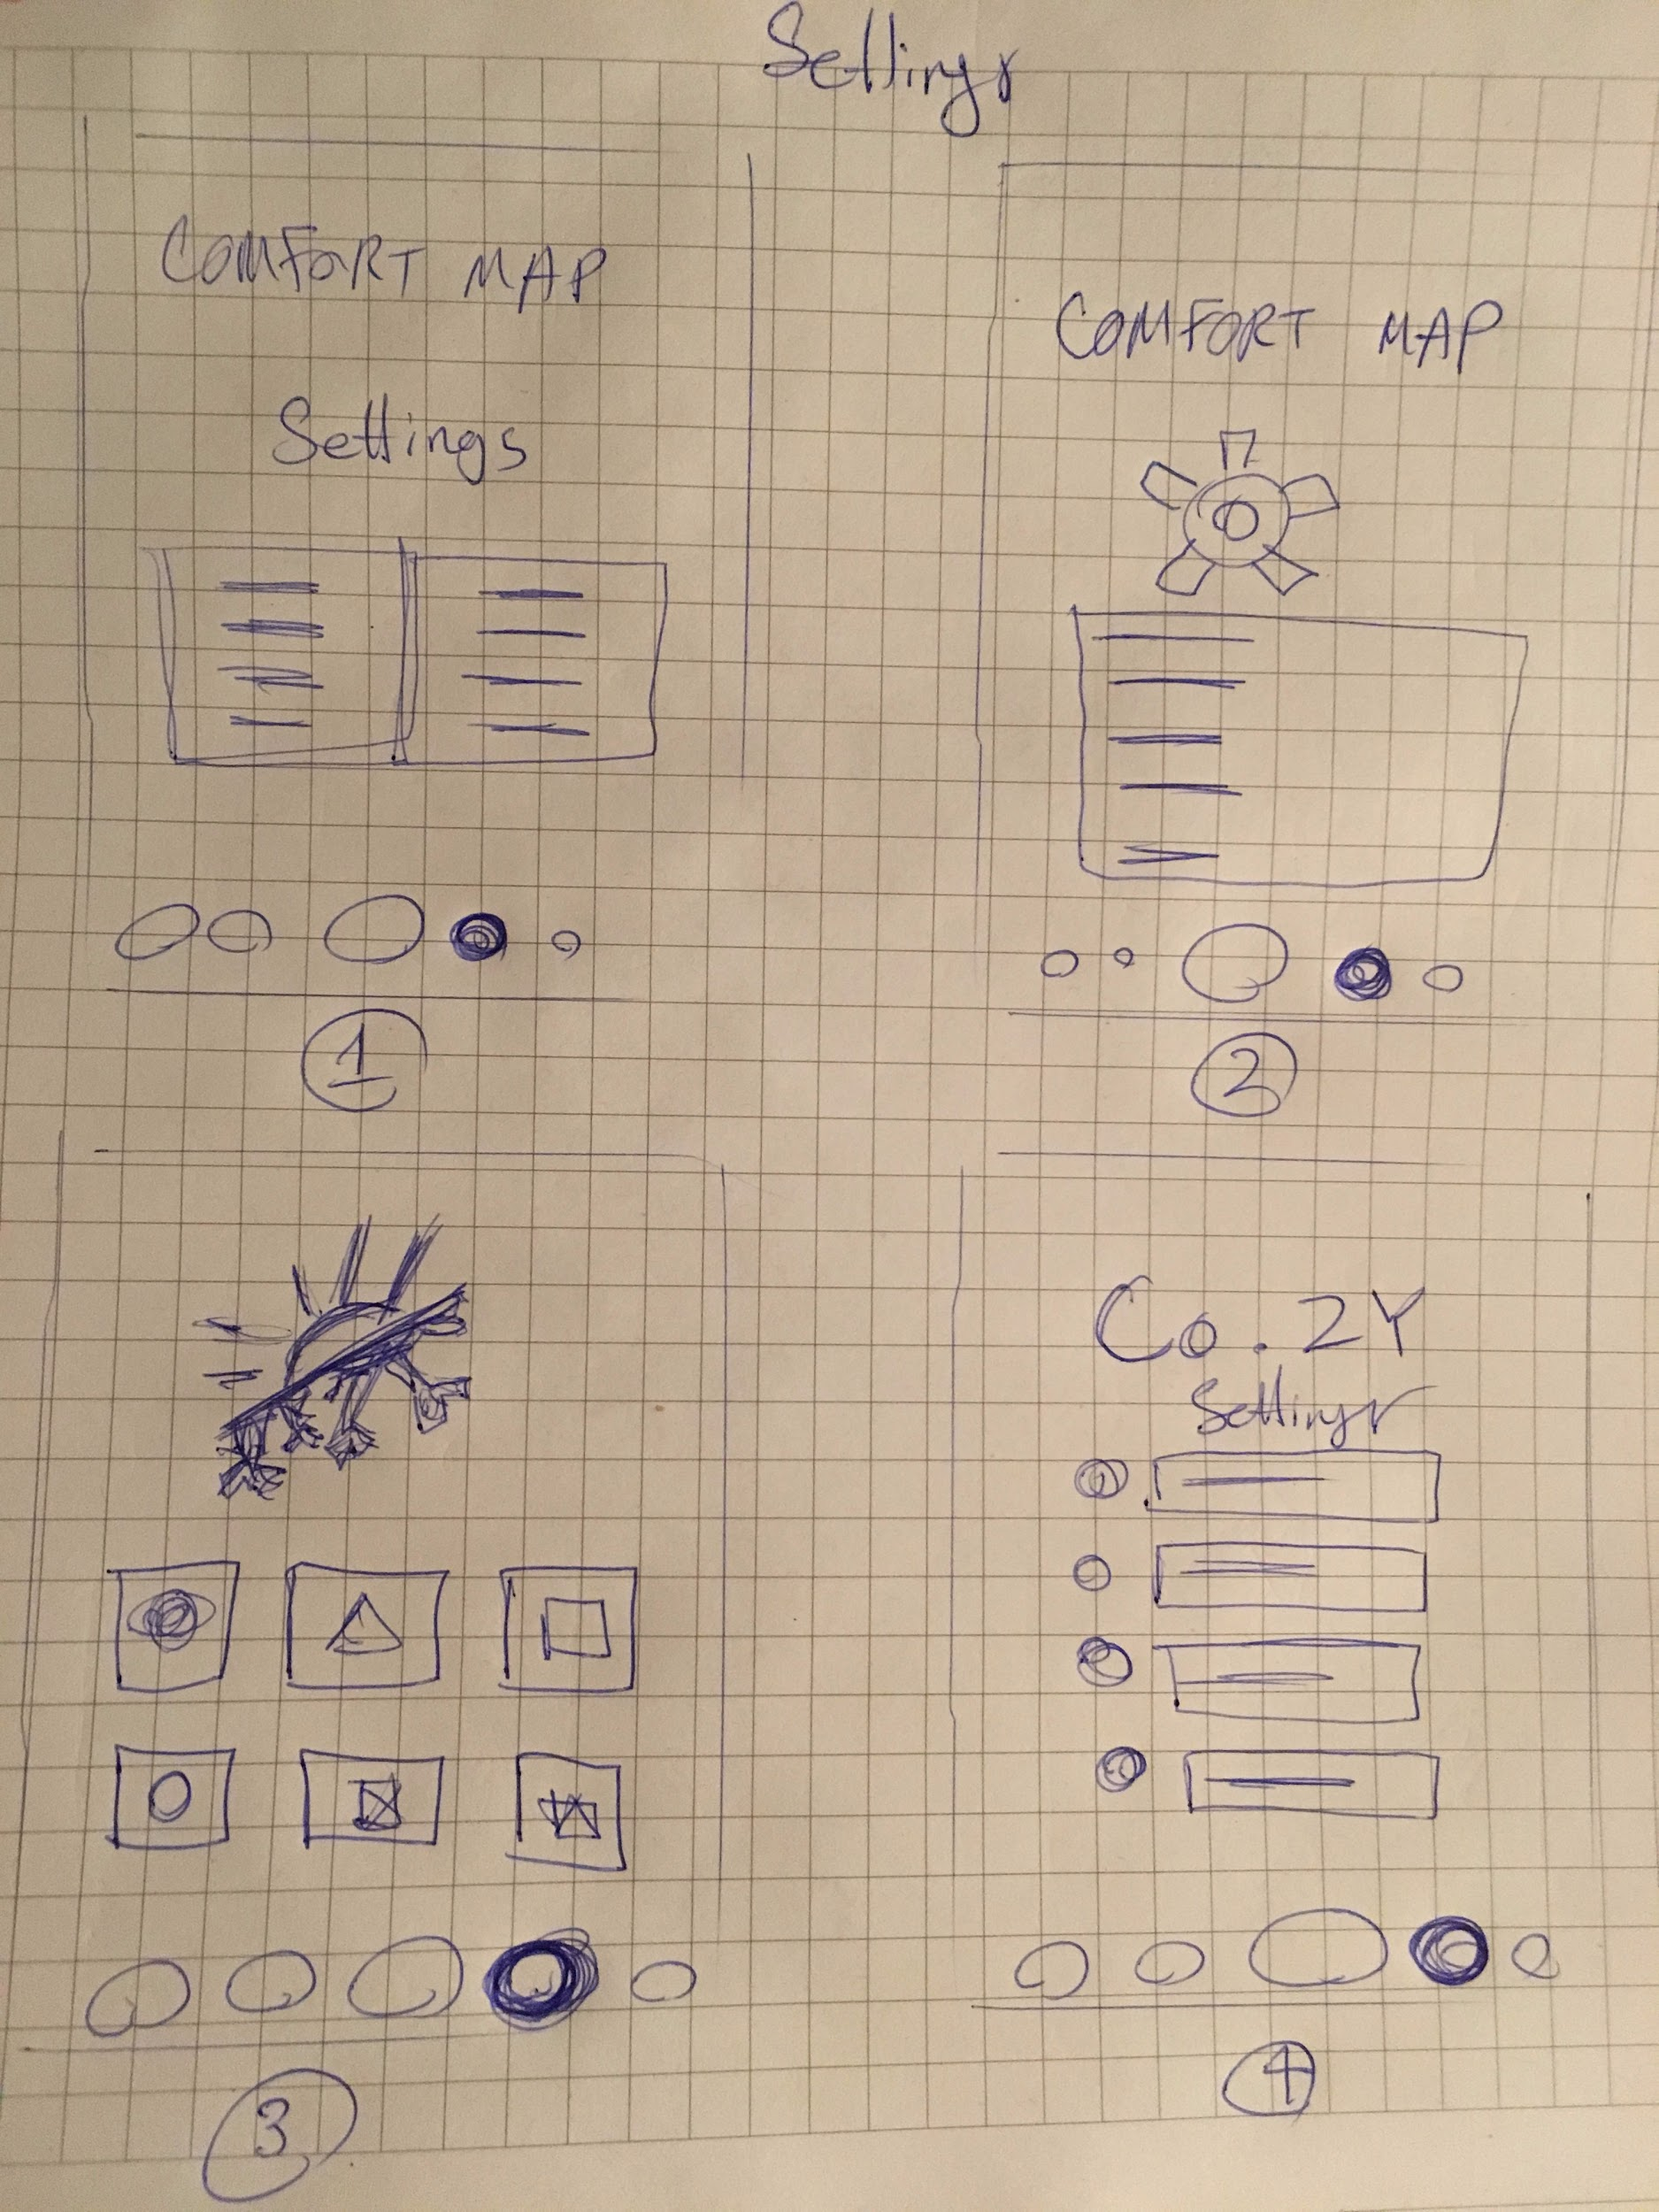 Settings
COMFORT MAP
Settings
1
COMFORT MAP
2
3
Co.ZY
Settings
4